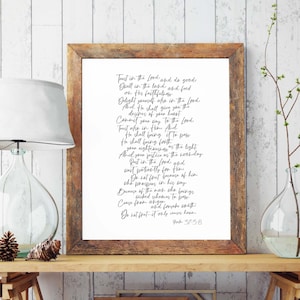 Trust in the Lord, and do good;
Dwell in the land, and feed
on His faithfulness.
Delight yourself also in the Lord,
And He shall give you the
desires of your heart.
Commit your way to the Lord,
Trust also in Him, And
He shall bring it to pass.
He shall bring forth
your righteousness as the light,
And your justice as the noonday.
Rest in the Lord, and
wait patiently for Him;
Do not fret because of him
who prospers in his way,
Because of the man who brings
wicked schemes to pass.
Cease from anger,
and forsake wrath;
Do not fret - it only causes harm.
Psalm 37:3-8